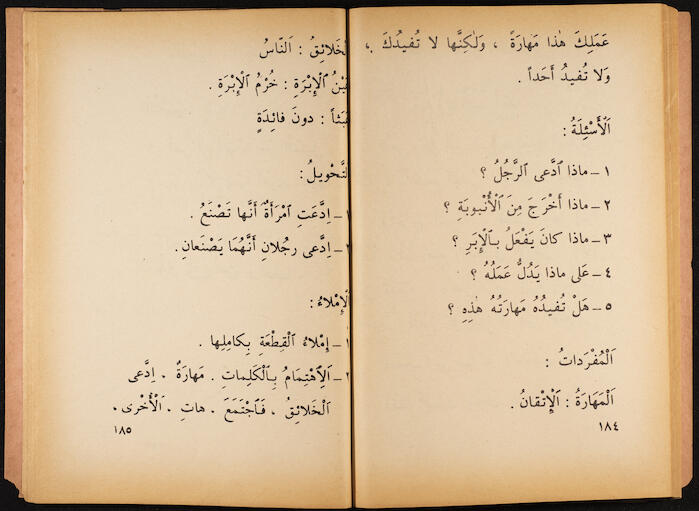 عَمَلِكَ هٰذا مَهارَةً ، وَلٰكِنَّها لا تُفيدُكَ ،
وَلا تُفيدُ أَحَداً .
اَلْأَسْئِلَةُ :
١ – ماذا ٱدَّعى ٱلرَّجُلُ ؟
٢ – ماذا أَخْرَجَ مِنَ ٱلْأُنْبوبَةِ ؟
٣ – ماذا كانَ يَفْعَلُ بِٱلْإِبَرِ ؟
٤ – عَلى ماذا يَدُلُّ عَمَلُهُ ؟
٥ – هَلْ تُفيدُهُ مَهارَتُهُ هٰذِهِ ؟
اَلْمُفْرَداتُ :
اَلْمَهارَةُ : اَلْإِتْقانُ .
١٨٤
لْخَلائِقُ : اَلنّاسُ
يْنُ ٱلْإِبْرَةِ : خُرْمُ ٱلْإِبْرَةِ .
بَثاً : دونَ فائِدَةٍ
لتَّحْويلُ :
١ – اِدَّعَتِ ٱمْرَأَةٌ أَنَّها تَصْنَعُ .
٢ – اِدَّعى رَجُلانِ أَنَّهُمَا يَصْنَعانِ .
لْإِمْلاءُ :
١ – إِمْلاءُ ٱلْقِطْعَةِ بِكامِلِها .
٢ – اَلِٱهْتِمامُ بِٱلْكَلِماتِ . مَهارَةٌ . اِدَّعى
اَلْخَلائِقُ . فَٱجْتَمَعَ . هاتِ . اَلْأُخْرى .
١٨٥